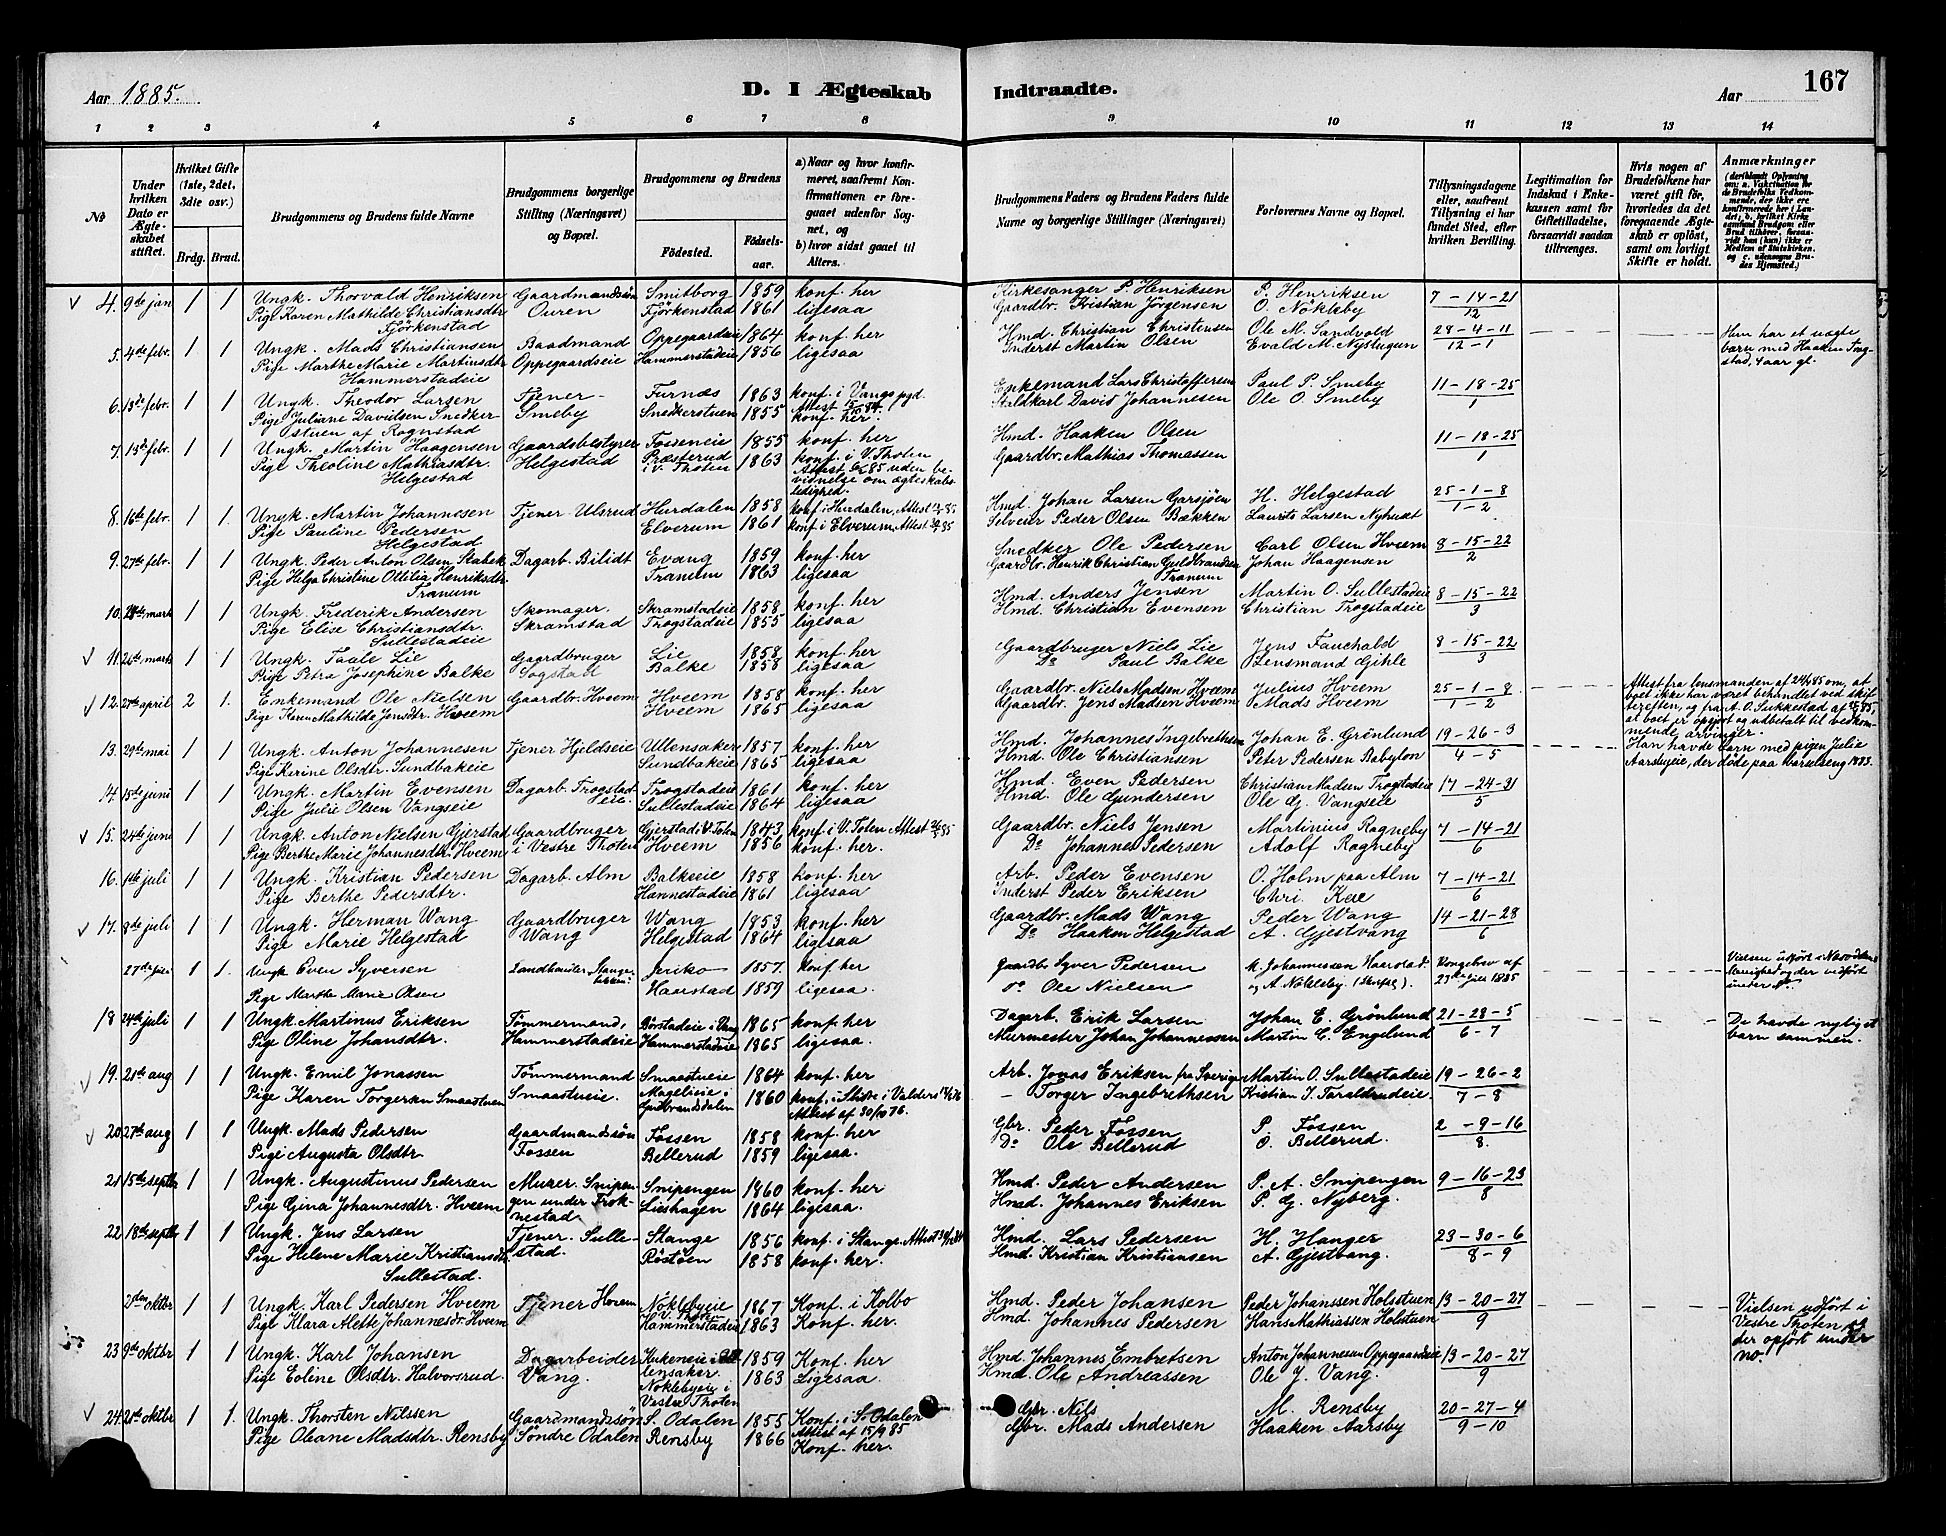 Aar 1885.
D. I Ægteskab Indtraadte.
Aar
167
1 2 3 4 5 6 7 8 9 10 11 12 13 14
No
Under hvilken Dato er Ægteskabet stiftet.
Hvilket Gifte (1ste, 2det, 3die osv.)
Brdg. Brud.
Brudgommens og Brudens fulde Navne
Brudgommens borgerlige Stilling (Næringsvei) og Bopæl.
Brudgommens og Brudens
Fødested. Fødselsaar.
a) Naar og hvor konfirmeret, saafremt Konfirmationen er foregaaet udenfor Sognet, og
b) hvor sidst gaaet til Alters.
Brudgommens Faders og Brudens Faders fulde Navne og borgerlige Stillinger (Næringsvei)
Forlovernes Navne og Bopæl.
Tillysningsdagene eller, saafremt Tillysning ei har fundet Sted, efter hvilken Bevilling.
Legitimation for Indskud i Enkekassen samt for Giftetilladelse, forsaavidt saadan tiltrænges.
Hvis nogen af Brudefolkene har været gift før, hvorledes da det foregaaende Ægteskab er opløst, samt om lovligt Skifte er holdt.
Anmærkninger
4. 9de jan 1 1 Ungk. Thorvald Henriksen Gaardmandssøn Smitborg 1859 konf. her Kirkesanger P. Henriksen P. Henriksen 7-14-21
Pige Karen Mathilde Christiansdtr Ouren Fjörkenstad 1861 ligesaa Gaardbr. Kristian Jörgensen O. Nökleby 12
Fjörkenstad
5. 4de febr. 1 1 Ungk. Mads Christiansen Baadmand Oppegaardseie 1864 konf. her Hmd. Christian Christensen Ole M. Sandvold 28-4-11 Hun har et uægte
Pige Marthe Marie Martinsdtr Oppegaardseie Hammerstadeie 1856 ligesaa Inderst Martin Olsen Evald M. Nystugun 12-1 barn med Haaken Trog-
Hammerstadeie stad, 4 aar gl.
6. 13de febr. 1 1 Ungk. Theodor Larsen Tjener Furnæs 1863 konf. i Vangs pgd. Enkemand Lars Christoffersen Paul P. Smeby 11-18-25
Pige Juliane Davidsen Snedker Smeby Snedkerstuen 1855 konf. her. Staldkarl David Johannesen Ole O. Smeby 1
Ostuen af Rognstad
7. 13de febr. 1 1 Ungk. Martin Haagensen Gaardsbestyrer Fosseneie 1855 konf. her Hmd. Haaken Olsen 11-18-25
Pige Theoline Mathiasdtr. Helgestad Præsterud i V. Thoten 1863 konf. i V. Thoten Gaardbr. Mathias Thomassen 1
Helgestad Attest 85 uden bevidnelse om ægteskabsledighed.
8. 16de febr. 1 1. Ungk. Martin Johannesen Tjener Ulsrud Hurdalen 1858 konf. i Hurdalen, Attest Hmd. Johan Larsen Garsjøen H. Helgestad 25-1-8
Pige Pauline Pedersen Elverum 1861 konf. i Elverum, Attest Selveier Peder Olsen Bækken Laurits Larsen Nyhuset 1-2
Helgestad
9. 27de febr. 1 1 Ungk. Peder Anton Olsen Stabek Dagarb. Bilidt Evang 1859 konf. her Snedker Ole Pedersen Carl Olsen Hveem 8-15-22
Pige Helga Christine Ottilia Henriksdtr. Tranum 1863 ligesaa Gaardbr. Henrik Christian Guldbrandsen Johan Haagensen 2
Tranum Tranum
10. mark 1 1 Ungk. Frederik Andersen Skomager Skramstadeie 1858 konf. her Hmd. Anders Jensen Martin O. Sullestadeie 8-15-22
Pige Elise Christiansdtr. Skramstad Trogstadeie 1855 ligesaa Hmd. Christian Evensen Christian Trogstadeie 3
Sullestadeie
11. 26de marts 1 1 Ungk. Taale Lie Gaardbruger Lie 1858 konf. her Gaardbruger Niels Lie Jens Fauchald 8-15-22
Pige Petra Josephine Balke Sogstad Balke 1858 ligesaa Do Paul Balke Lensmand Gihle 3
12. 27de april 2 1. Enkemand Ole Nielsen Gaardbr. Hveem Hveem 1858 konf. her Gaardbr. Niels Madsen Hveem Julius Hveem 25-1-8 Attest fra lensmanden af 24/4 85 om, at
Pige Karen Mathilde Jensdtr. Hveem Hveem 1865 ligesaa Gaardbr. Jens Madsen Hveem Mads Hveem 1-2 boet ikke har været behandlet ved skifteretten, og fra A. O. Sukkestad af 85, at boet er opgjort og udbetalt til vedkommende arvinger.
13. 29de mai 1 1 Ungk. Anton Johannesen Tjener Hjeldseie Ulensaker 1857 konf. her Hmd. Johannes Ingebrethsen Johan E. Grönlund 19-26-3 Han havde barn med pigen Julie
Pige Karine Olsdtr. Sundbakeie Sundbakeie 1865 ligesaa Hmd. Ole Christiansen Peter Pedersen Babylon 4-5 Aarsbyeie, der døde paa barselseng 1883.
14. 15de juni 1 1 Ungk. Martin Evensen Dagarb. Trogstadeie. Trogstadeie 1861 konf. her Hmd. Even Pedersen Christian Madsen Trogstadeie 17-24-31
Pige Julie Olsen Vangseie Sullestadeie 1864 ligesaa Hmd. Ole Gundersen Ole G. Vangseie 5
15. 24de juni 1 1 Ungk. Anton Nielsen Gjerstad Gaardbruger Gjerstad i V. Toten 1843 konf. i V. Toten Attest Gaardbr. Niels Jensen Martinius Ragneby 7-14-21
Pige Berthe Marie Johannesdtr. Hveem i Vestre Thoten Hveem 1856 konf. her. Do Johannes Pedersen Adolf Ragneby 6
16. 1ste juli 1 1 Ungk. Kristian Pedersen Dagarb. Alm Balkeeie 1858 konf. her Arb. Peder Evensen O. Holm paa Alm 7-14-21
Pige Berthe Pedersdtr. Hannestadeie 1861 ligesaa Inderst Peder Eriksen Chri. Kae 6
17. 8de juli 1 1 Ungk. Herman Wang Gaardbruger Wang 1853 konf. her Gaardbr. Mads Wang Peder Wang 14-21-28
Pige Marie Helgestad Wang Helgestad 1864 ligesaa Do Haaken Helgestad A. Gjestvang 6
27de 1 1. Ungk Even Syversen Landhandler, Stange Jeriko 1857. konf. her Gaardbr Syver Pedersen M. Johannessen Haarstad Kongebrev af Vielsen udført i
Pige Marthe Marie Olsen Haarstad 1859 ligesaa. do Ole Nielsen og A. Nökleby. 23de juli 1885 Menighed og der indført under No.
18 24de juli 1 1 Ungk. Martinus Eriksen Tømmermand, Börstadeie i Vang 1865 konf. her Dagarb. Erik Larsen Johan E. Grönlund 21-28-5 De havde nyligst
Pige Oline Johansdtr. Hammerstadeie Hammerstadeie 1865 ligesaa. Murmester Johan Johannessen Martin C. Engelund 6-7 barn sammen.
19. 21de aug 1 1 Ungk. Emil Jonassen Tømmermand Smaastueie 1864 konf. her Arb. Jonas Eriksen fra Sverige Martin O. Sullestadeie 19-26-2
Pige Karen Torgersen Smaastuen Smaastueie. Magelieie i Gudbrandsdalen 1860 konf. i Slidre i Valders - Torger Ingebrethsen Kristian I. Taraldrudeie. 7-8
Attest af 30/10 76.
20 27de aug 1 1 Ungk. Mads Pedersen Gaardmandssøn Fossen 1858 konf. her Gbr. Peder Fossen P. Fossen 2-9-16
Pige Augusta Olsdtr. Fossen Bellerud 1859 ligesaa. Do Ole Bellerud O. Bellerud. 8.
21 15de septbr 1 1 Ungk. Augustinus Pedersen Murer. Snipengen under Troknestad Snipengen 1860 konf. her Hmd. Peder Andersen P. A. Snipengen 9-16-23
Pige Gina Johannesdtr. Hveem Lieshagen 1864 ligesaa. Hmd. Johannes Eriksen P. G. Nyberg. 8
22 18de septbr 1 1 Ungk. Jens Larsen Tjener. Sullestad. Stange 1856 konf. i Stange. Attest Hmd. Lars Pedersen H. Hanger 23-30-6
Pige Helene Marie Kristiansdtr. Röstöen 1858 konf. her. Hmd. Kristian Kristiansen A. Gjestvang. 8-9
Sullestad.
2den oktbr 1 1 Ungk. Karl Pedersen Hveem Tjener Hveem Nöklebyeie V. Thoten 1867 Konf. i Kolbo Hmd. Peder Johansen Peder Johanssen Holstuen 13-20-27 Vielsen udført i
Pige Klara Alette Johannesdr. Hveem Hammerstadeie 1863 Konf. her. Hmd. Johannes Pedersen Hans Mathiassen Holstuen 9 Vestre Thoten og der opført under no.
23 9de oktbr 1 1 Ungk. Karl Johansen Dagarbeider Kukeneie i Ullensaker 1859 Konf. her Hmd. Johannes Embretsen Anton Johannesen Oppegaardseie 13-20-27
Pige Eoline Olsdtr. Halvorsrud. Vang. Noklebyeie i Vestre Thoten 1863 Ligesaa. Hmd. Ole Andreassen Ole J. Vang. 9
24 21de oktbr 1 1. Ungk. Thorsten Nilssen Gaardmandssøn S. Odalen 1855 Konf. i S. Odalen Gbr. Nils M. Rensby 20-27-4
Pige Oleane Madsdtr. Rensby Söndre Odalen Rensby 1866 Attest af 15/9 85 Konf. her. Gbr. Mads Andersen Haaken Aarsby 9-10